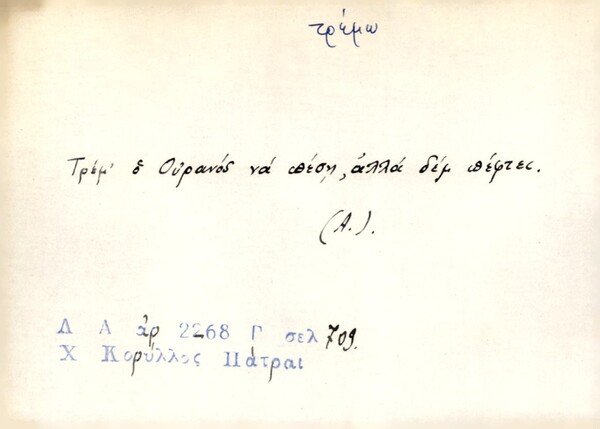 τρέμω
Τρέμ' ὁ Οὐρανός νά πέσῃ, ἀλλά δέμ πέφτει.
(Α.).
Λ Α ἀρ 2268 Γ σελ 709.
Χ Κορύλλος Πάτραι